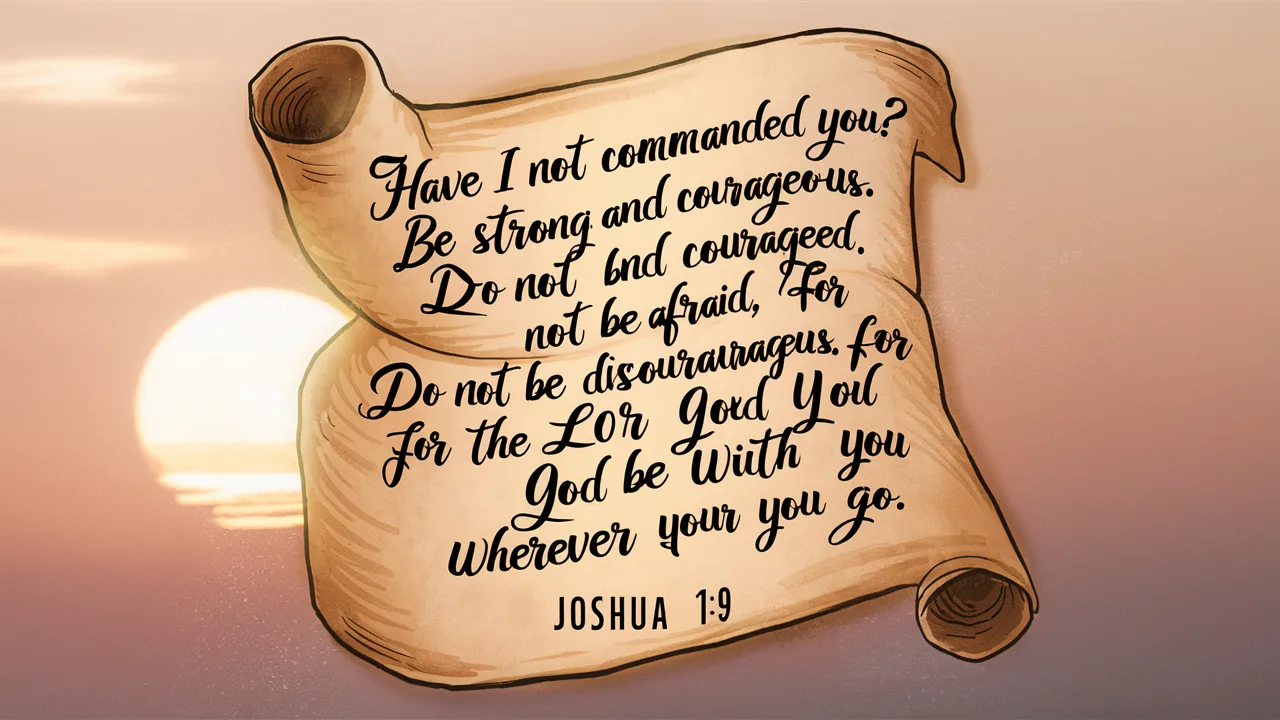 Have I not commanded you?
Be strong and courageous.
Do not bnd courageed.
not be afraid, For
Do not be disourauragus. for
for the LOr Gord Yoil
God be Wiith you
wherever your you go.
JOSHUA 1:9